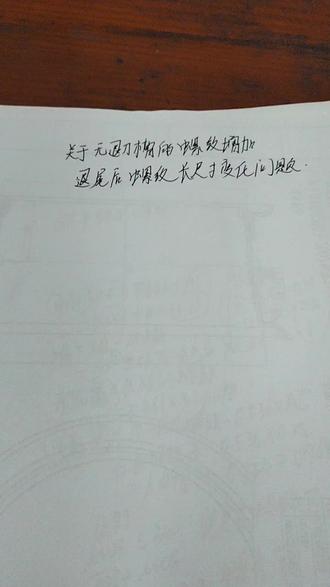 关于无退刀槽的螺纹增加
退尾后螺纹长尺寸变化问题.